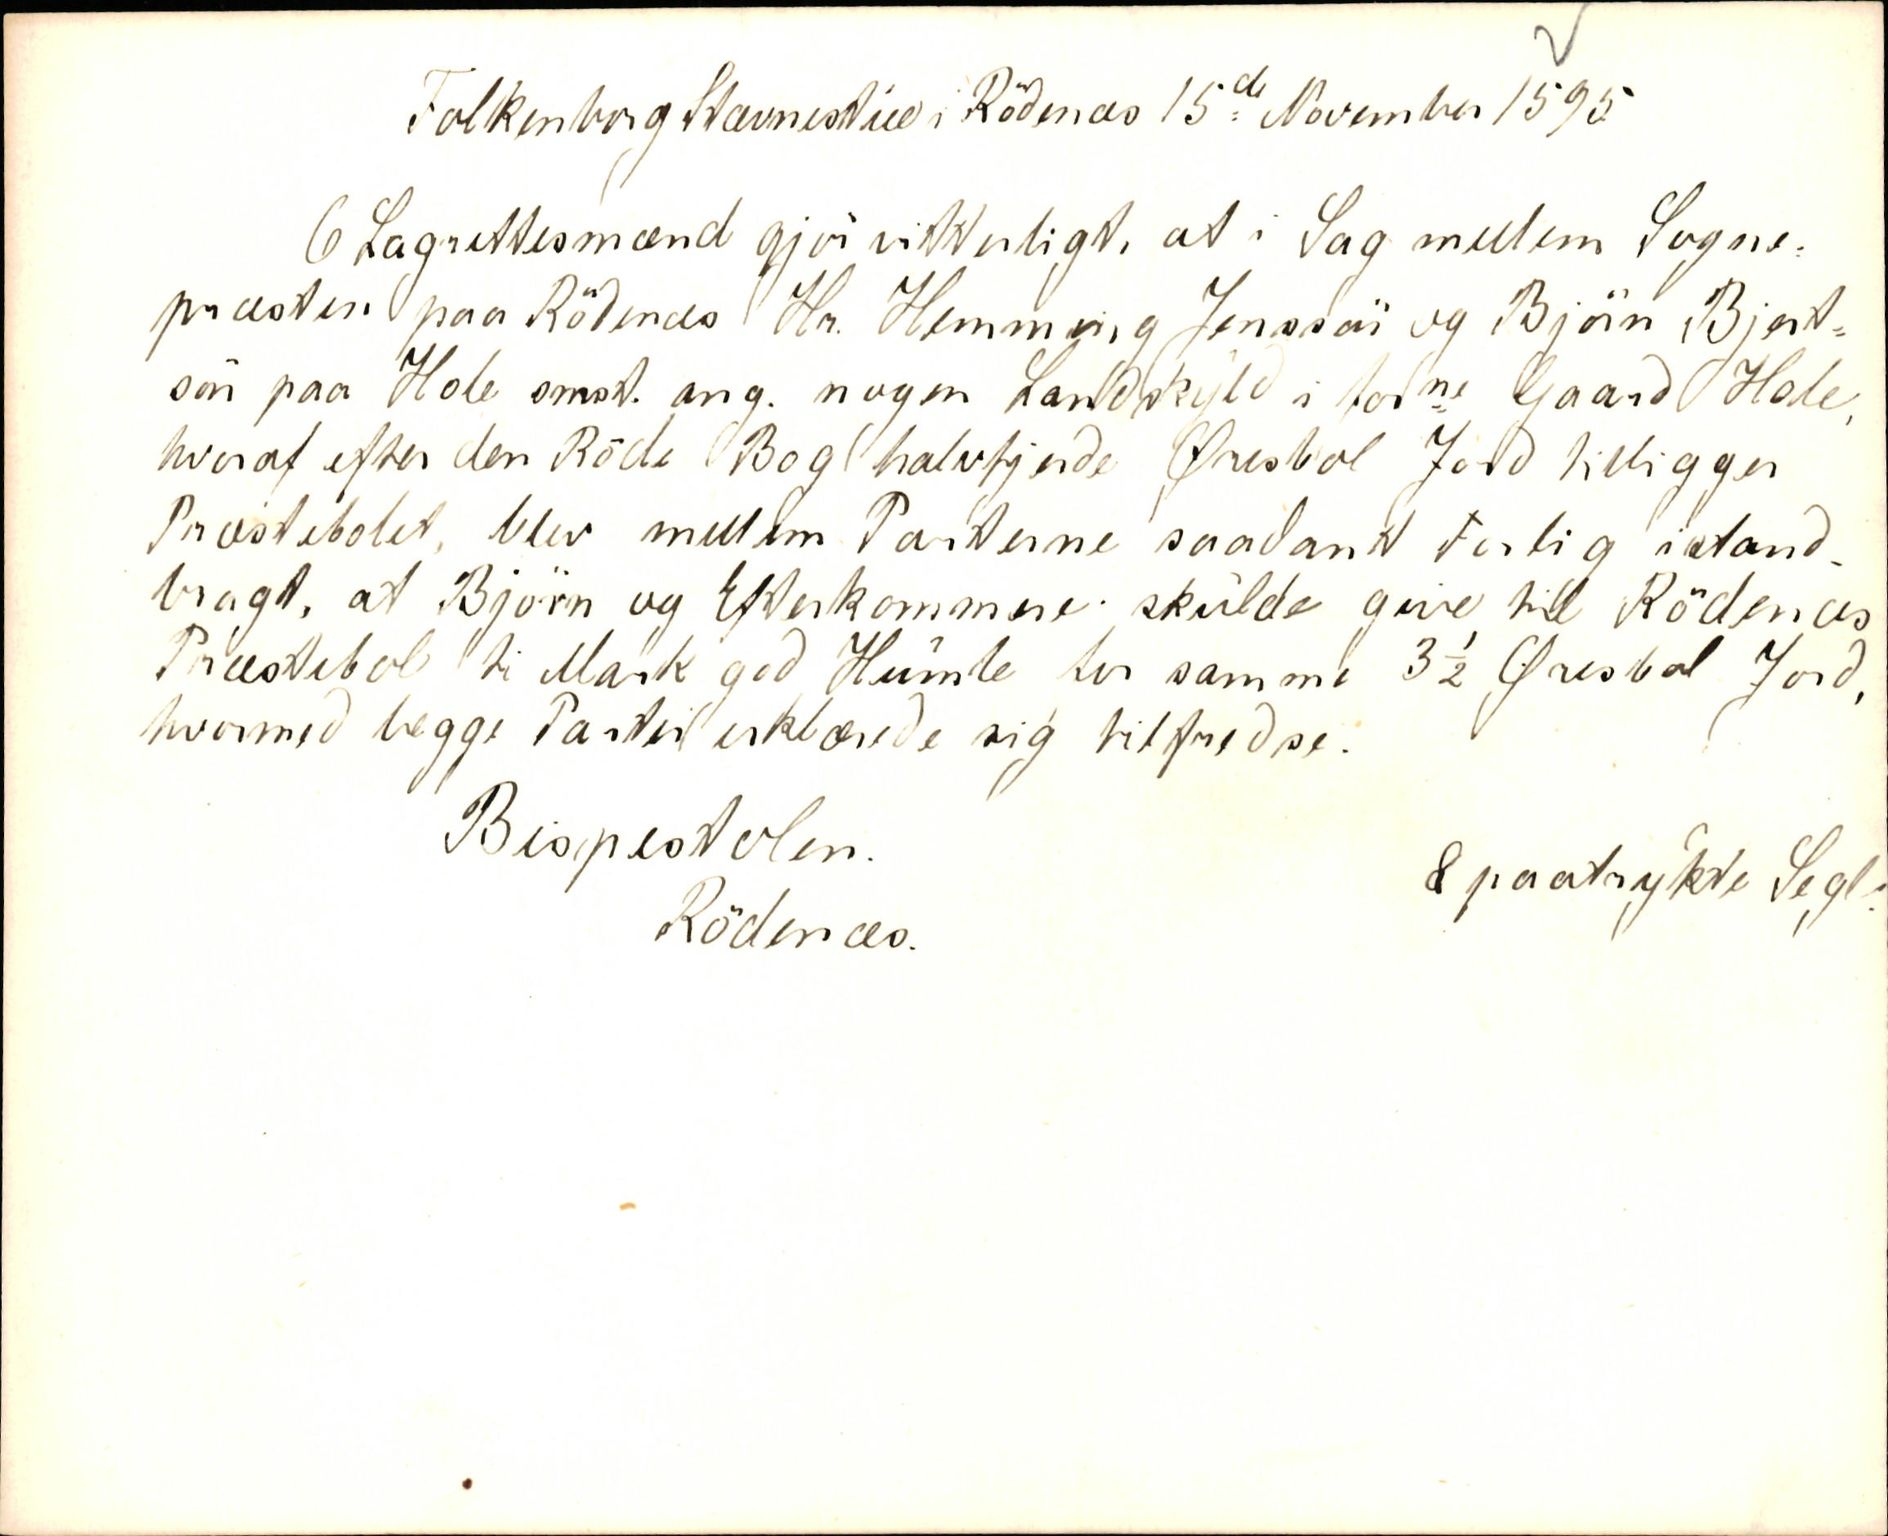 Folkenborg Stævnestue i Rödenæs 15de November 1595
6 Lagrettesmænd gjör vitterligt, at i Sag mellem Sogne-
præsten paa Rödenæs Hr. Hemming Jenssön og Björn Bjert-
sön paa Hole smst. ang. nogen Landskyld i forne Gaard Hole,
hvoraf efter den Röde Bog halvfjerde Øresbol Jord tilligger
Præstebolet, blev mellem Parterne saadant Forlig istand-
bragt, at Björn og Efterkommere skulde give til Rödenæs
Præstebol ti Mark god Humle for samme 3½ Øresbol Jord,
hvormed begge Parter erklærede sig tilfredse.
Bispestolen.
8 paatrykte Segl.
Rödenæs.